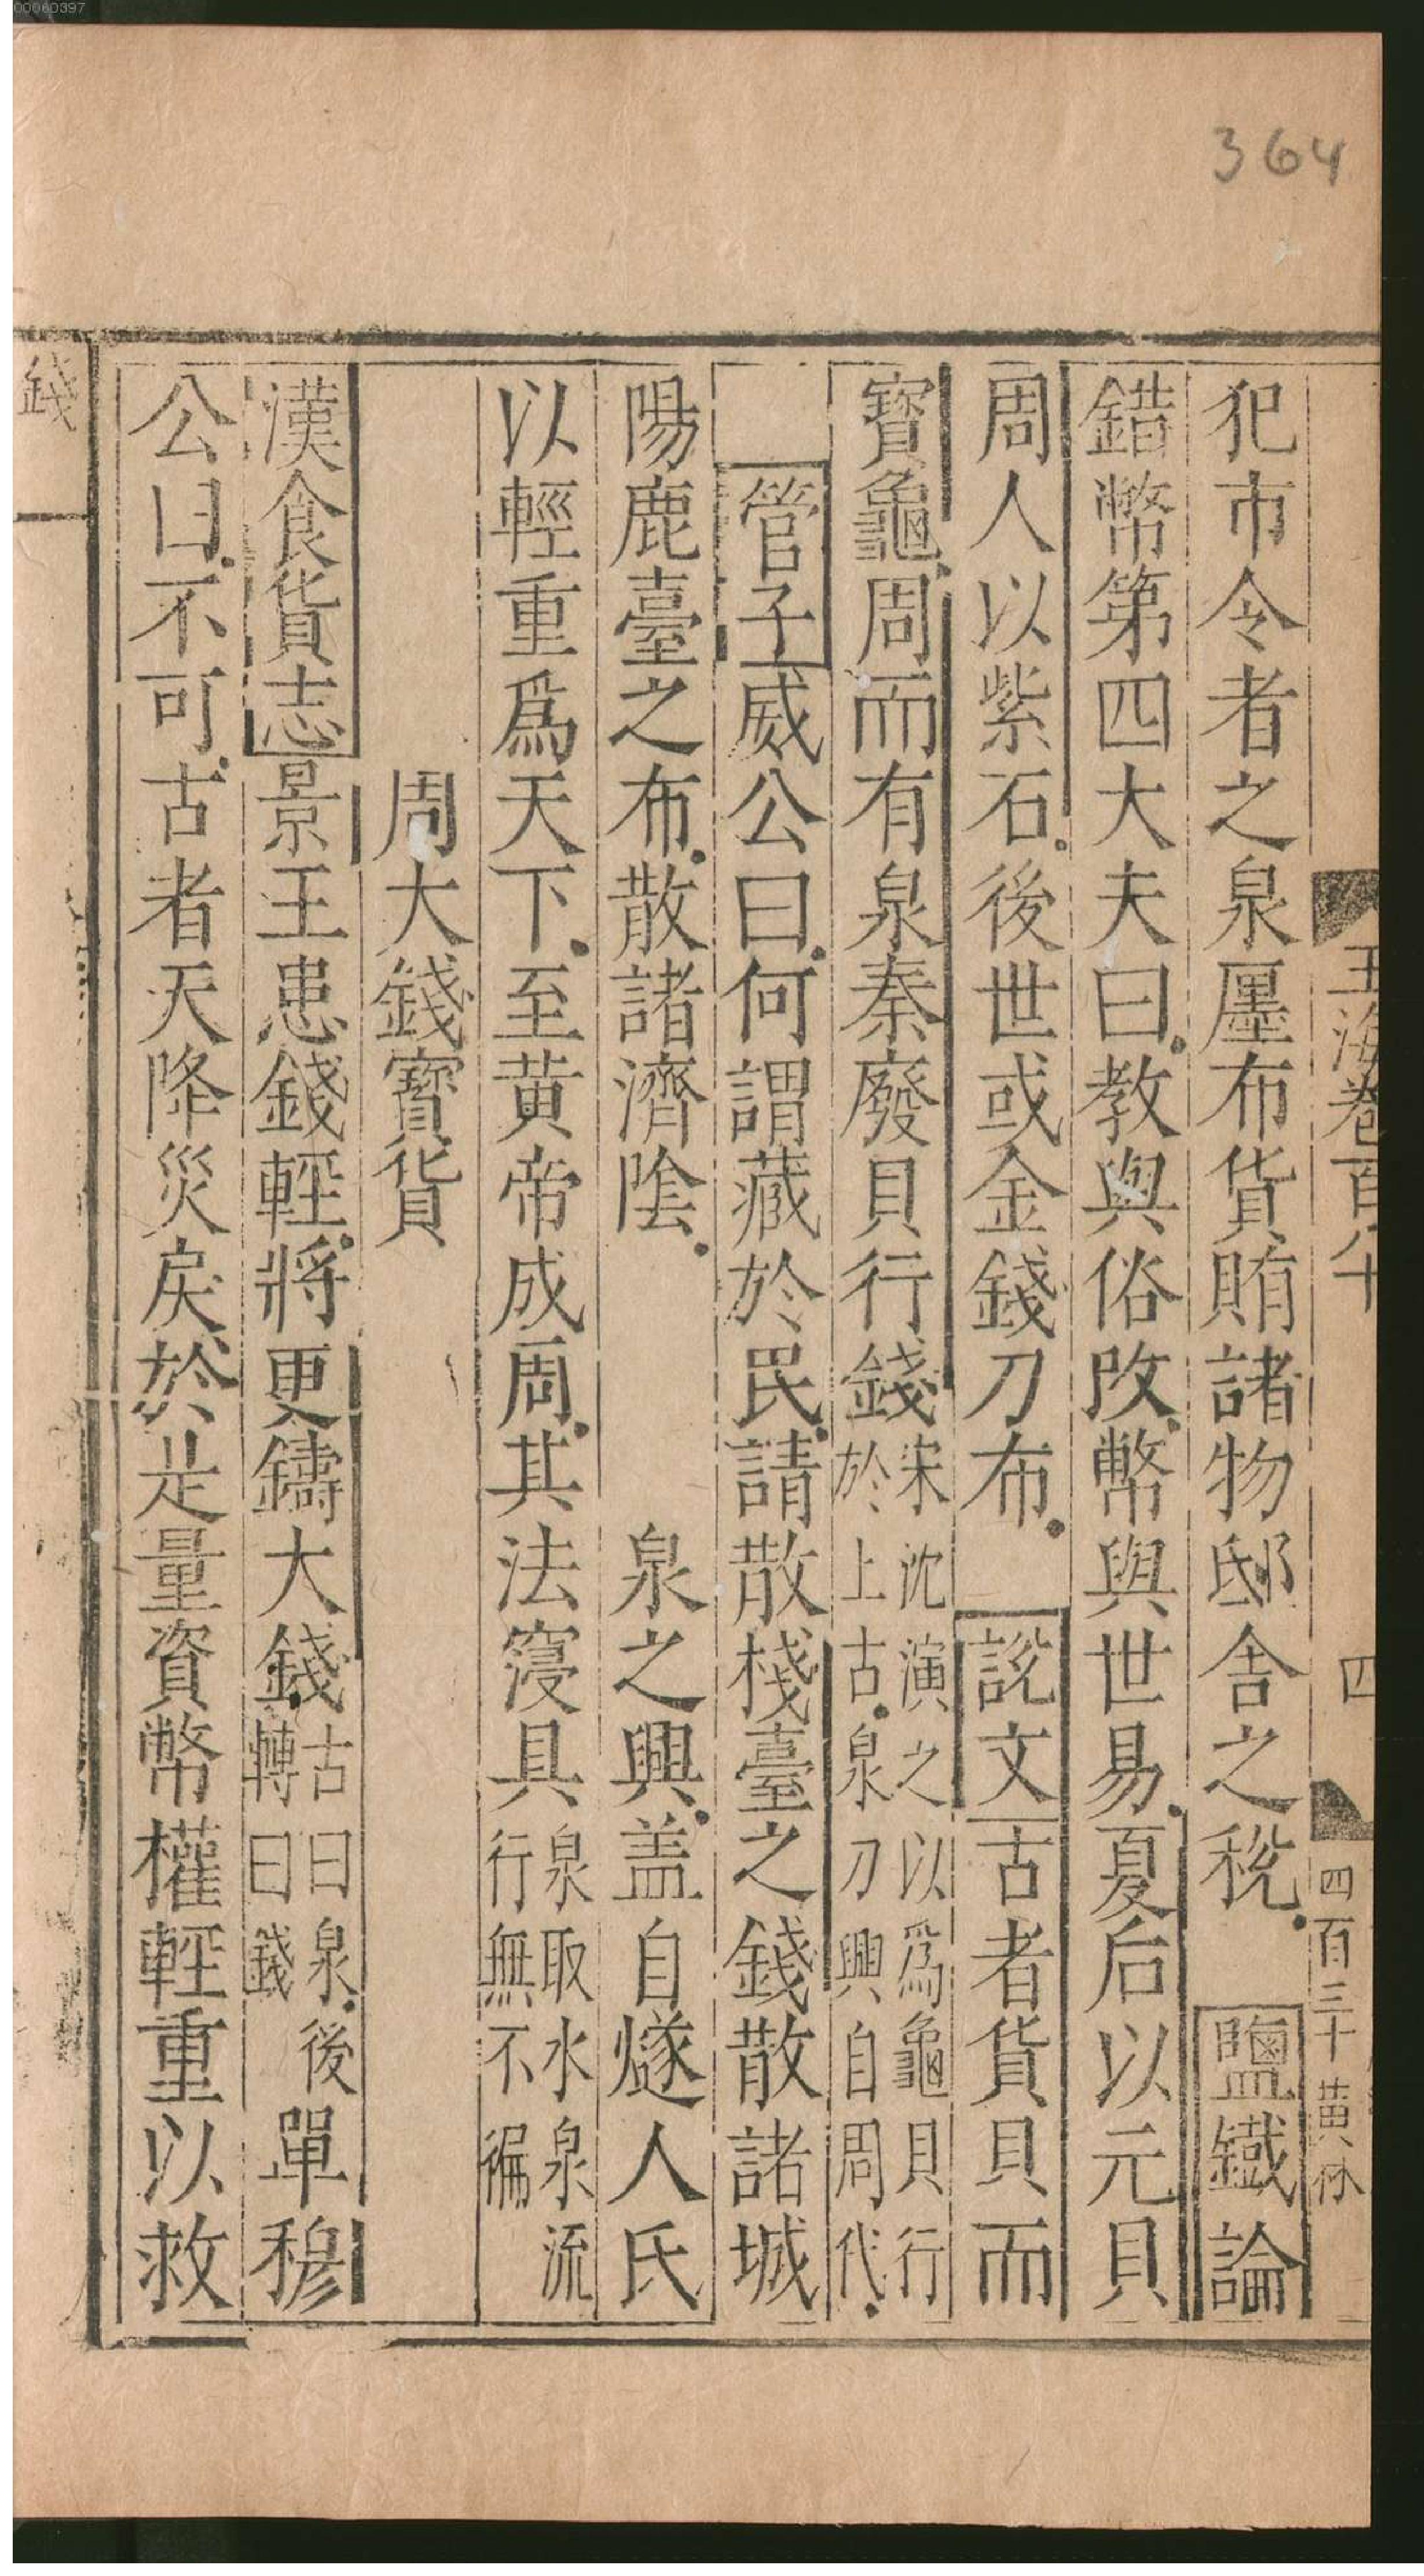 00060397
364
玉海卷百八十 四 四百三十 黄
犯市令者之泉厘布貨賄諸物邸舍之稅 鹽鐵論
錯幣第四大夫曰教與俗改幣與世易夏后以元貝
周人以紫石後世或金錢刀布 說文古者貨貝而
寶龜周而有泉秦廢貝行錢宋沈演之以爲龜貝行於上古泉刀興自周代
管子威公曰何謂藏於民請散棧臺之錢散諸城
陽鹿臺之布散諸濟隂 泉之興盖自燧人氏
以輕重爲天下至黄帝成周其法寖具泉取水泉流行無不徧
周大錢寳貨
漢食貨志景王患錢輕將更鑄大錢古曰泉後轉曰錢單穆
公曰不可古者天降災戾於是量資幣權輕重以救
錢